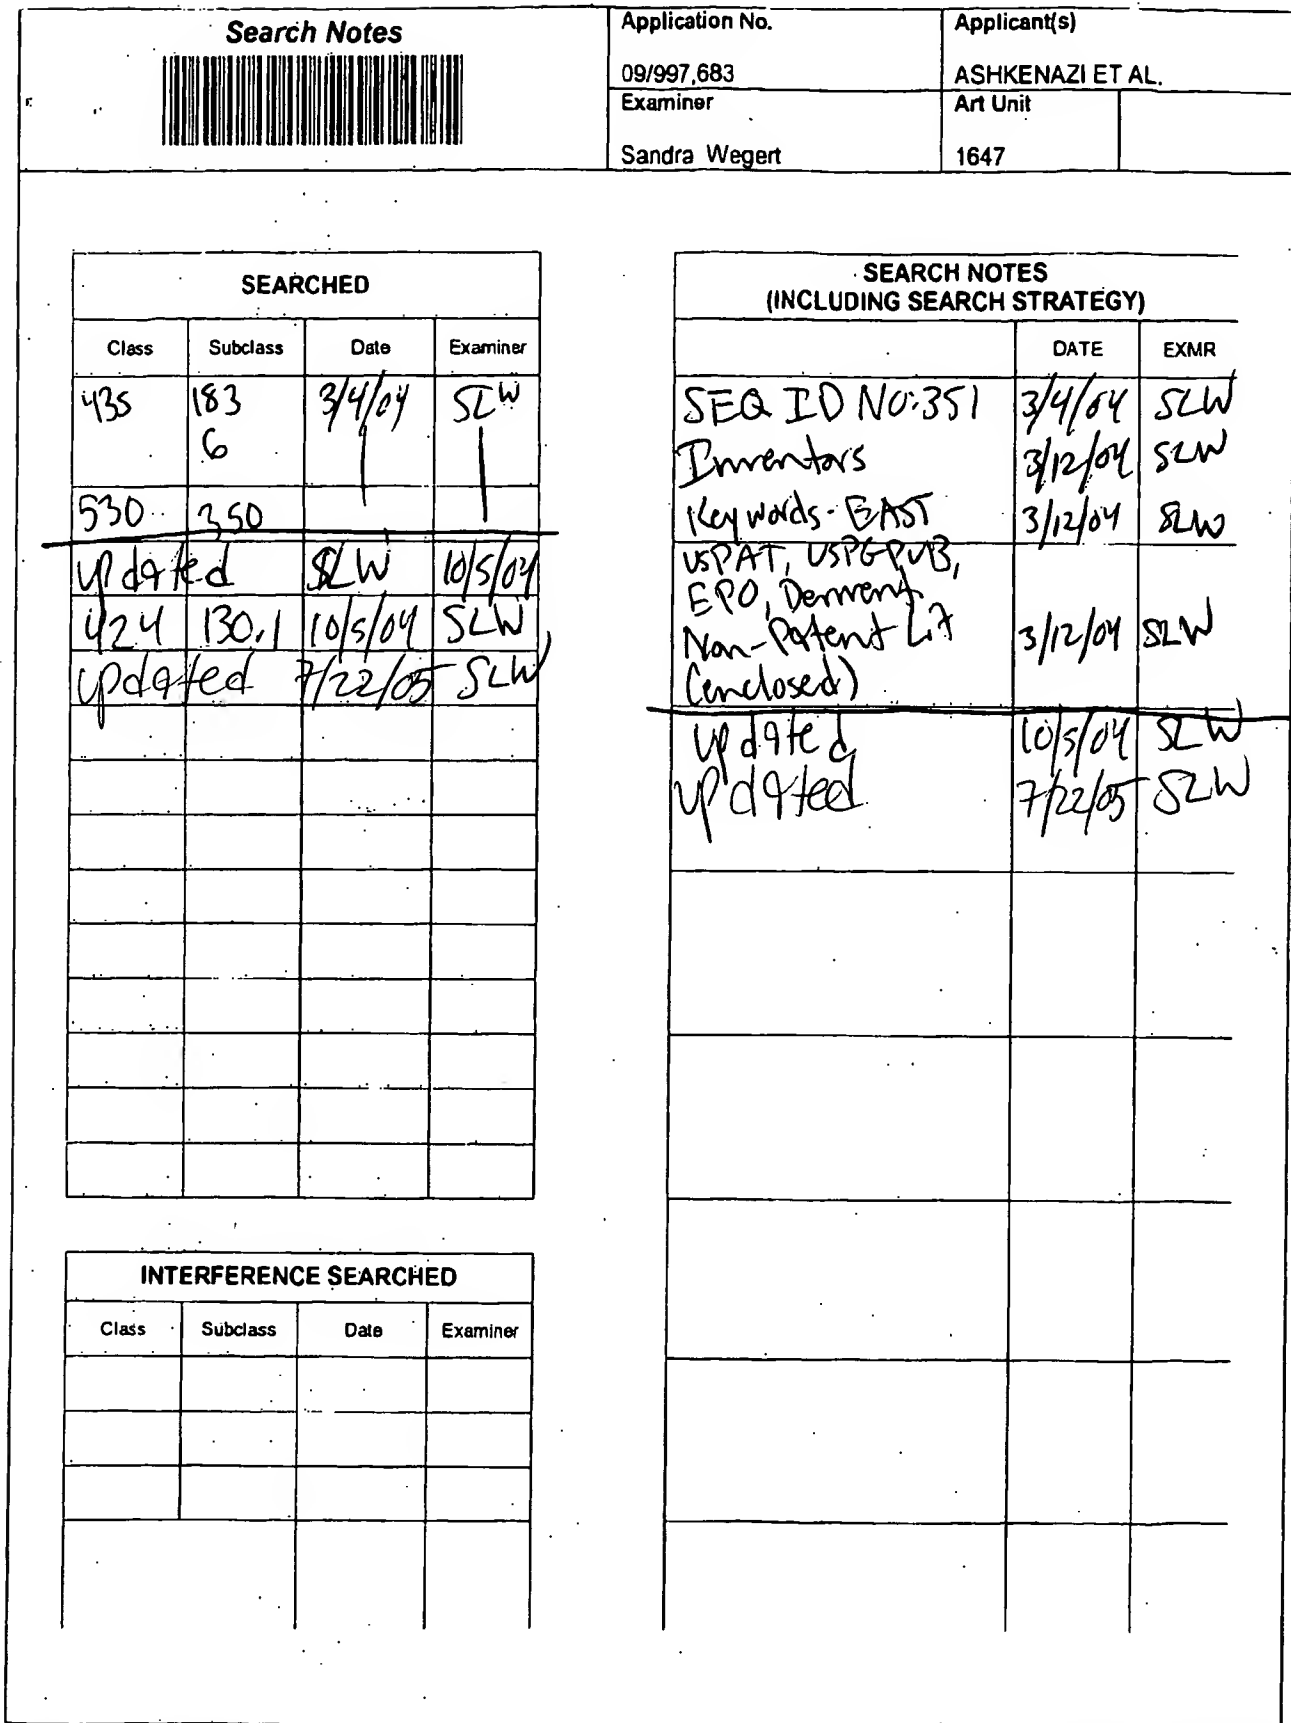 Search Notes
Application No.
Applicant(s)
09/997,683
ASHKENAZI ET AL.
Examiner
Art Unit
Sandra Wegert
1647
SEARCHED
Class Subclass Date Examiner
435 183 3/4/04 SLW
6
530 350
updated SLW 10/5/04
424 130.1 10/5/04 SLW
updated 7/22/05 SLW
INTERFERENCE SEARCHED
Class Subclass Date Examiner
SEARCH NOTES
(INCLUDING SEARCH STRATEGY)
DATE EXMR
SEQ ID NO:351 3/4/04 SLW
Inventors 3/12/04 SLW
Keywords-EAST 3/12/04 SLW
USPAT, USPGPUB,
EPO, Derwent
Non-Patent Lit 3/12/04 SLW
(enclosed)
updated 10/5/04 SLW
updated 7/22/05 SLW